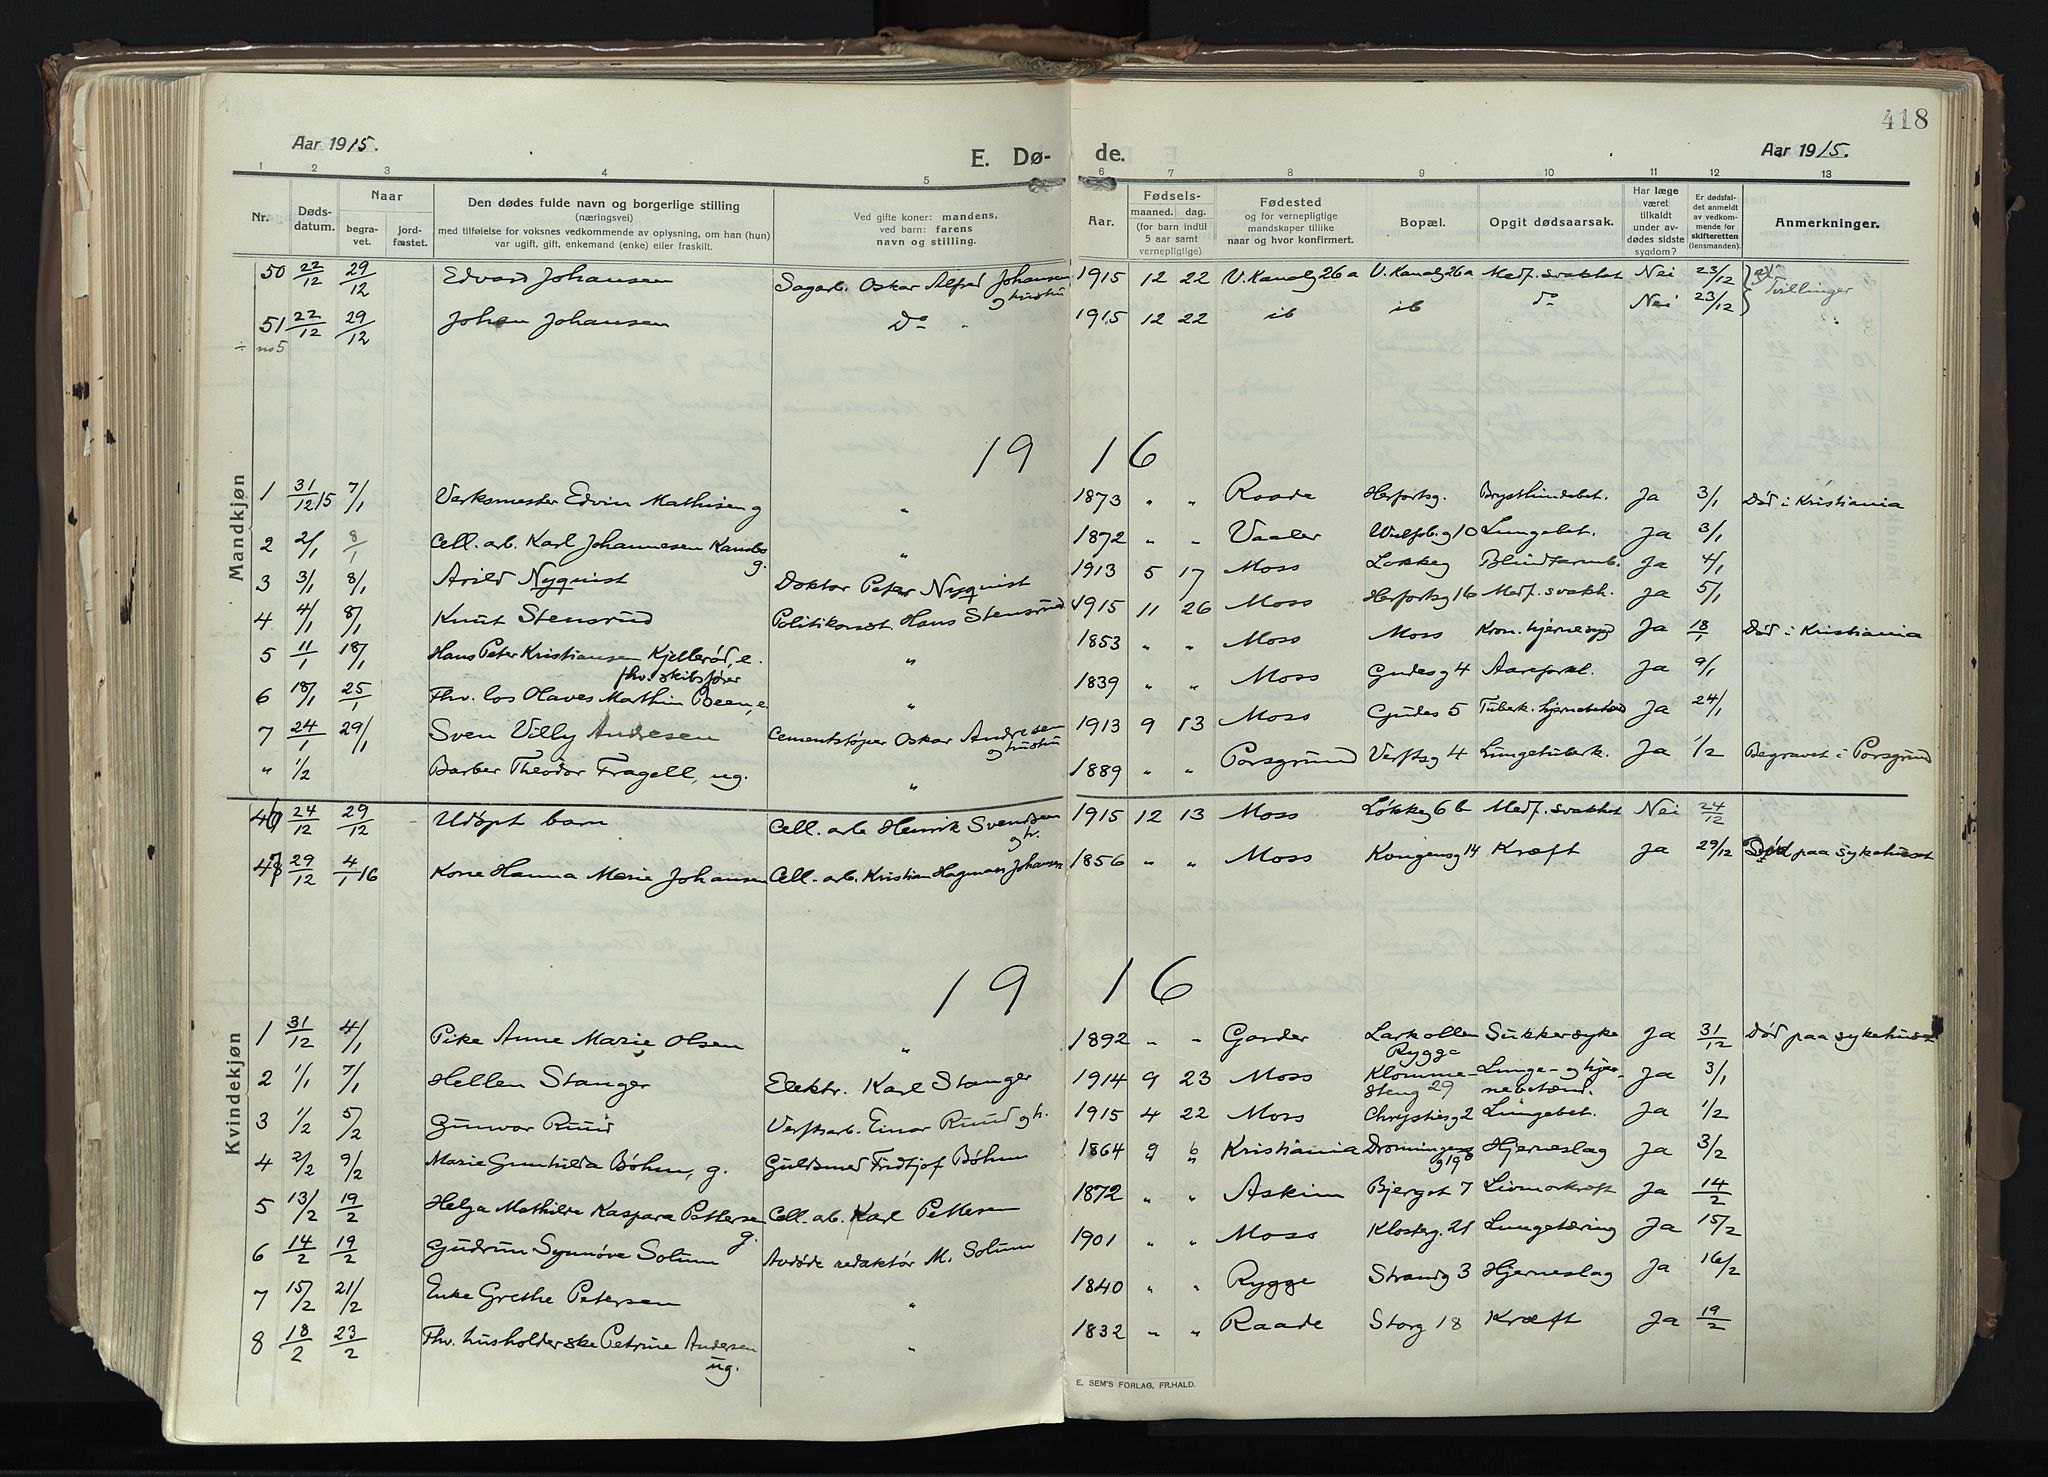 418
Aar 1915.
E. Dø- de.
Aar 1915.
1 2 3 4 5 6 7 8 9 10 11 12 13
Nr.
Døds-datum.
Naar
begra-vet.
jord-fæstet.
Den dødes fulde navn og borgerlige stilling
(næringsvei)
med tilføielse for voksnes vedkommende av oplysning, om han (hun)
var ugift, gift, enkemand (enke) eller fraskilt.
Ved gifte koner: mandens.
ved barn: farens
navn og stilling.
Aar.
Fødsels-
maaned. dag.
(for barn indtil
5 aar samt
vernepligtige)
Fødested
og for vernepligtige
mandskaper tillike
naar og hvor konfirmert.
Bopæl.
Opgit dødsaarsak.
Har læge
været
tilkaldt
under av-
dødes sidste
sygdom?
Er dødsfal-
det anmeldt
av vedkom-
mende for
skifteretten
(lensmanden).
Anmerkninger.
Mandkjøn
50 22/12 29/12 Edvard Johansen Sagarb. Oskar Alfred Johansen og hustru 1915 12 22 V. Kanalg 26 a V. Kanalg 26 a Medf. svakhet Nei 23/12 Tvillinger
51 22/12 29/12 Johan Johansen Do " 1915 12 22 ib ib do Nei 23/12
÷ no 5
19 16
1 31/12 15 7/1 Verksmester Edvin Mathisen g " 1873 " " Raade Herfortsg. Brysthindebet. Ja 3/1 Død i Kristiania
2 2/1 8/1 Cell. arb. Karl Johannesen Kambo g. " 1872 " " Vaaler Wulfsb.g 10 Lungebet. Ja 3/1
3 3/1 8/1 Arild Nyquist Doktor Peter Nyquist 1913 5 17 Moss Løkkeg Blindtarmb. Ja 4/1
4 4/1 8/1 Knut Stensrud Politikonst. Hans Stensrud 1915 11 26 Moss Herfortsg 16 Medf. svakh. Ja 5/1
5 11/1 18/1 Hans Peter Kristiansen Kjellerød, e. fhv. skibsfører " 1853 " " Moss Moss Kron. hjernesyd Ja 18/1 Død i Kristiania
6 18/1 25/1 Fhv. los Olaves Mathin Been, e. " 1839 " " Moss Gudesg 4 Aareforkl. Ja 9/1
7 24/1 29/1 Sven Villy Andresen Cementstøper Oskar Andresen og hustru 1913 9 13 Moss Gudes 5 Tuberk. hjernebetænd Ja 24/1
" 1/2 Barber Theodor Fragell, ug. " 1889 " " Porsgrund Verftsg 4 Lungetuberk. Ja 1/2 Begravet i Porsgrund
Kvindekjøn
46 24/12 29/12 Udøpt barn Cell. arb Henrik Svendsen og h. 1915 12 13 Moss Løkkeg 6 b Medf. svakhet Nei 24/12
47 29/12 4/1 16 Kone Hanna Marie Johansen Cell. arb. Kristian Hagman Johansen 1856 " " Moss Kongensg 14 Kræft Ja 29/12 Død paa sykehuset
19 16
1 31/12 4/1 Pike Anne Marie Olsen " 1892 " " Garder Larkollen Rygge Sukkersyke Ja 31/12 Død paa sykehuset
2 1/1 7/1 Hellen Stanger Elektr. Karl Stanger 1914 9 23 Moss Klomme-steng 29 Lunge- og hjer-nebetænd. Ja 3/1
3 1/2 5/2 Gunvor Ruud Verftsarb. Einar Ruud og h. 1915 4 22 Moss Chrystiesg 2 Lungebet. Ja 1/2
4 2/2 9/2 Marie Gunhilda Bøhm, g. Guldsmed Fridtjof Bøhm 1864 9 6 Kristiania Dronningensg 19 b Hjerneslag Ja 3/2
5 13/2 19/2 Helga Mathilde Kaspara Pettersen g. Cell. arb. Karl Pettersen 1872 " " Askim Bjerget 7 Livmorkræft Ja 14/2
6 14/2 19/2 Gudrun Synnøve Solum Avdøde redaktør M. Solum 1901 " " Moss Klosterg. 21 Lungetæring Ja 15/2
7 15/2 21/2 Enke Grethe Petersen " 1840 " " Rygge Strandg 3 Hjerneslag Ja 16/2
8 18/2 23/2 Fhv. husholderske Petrine Andersen ug. " 1832 " " Raade Storg 18 Kræft Ja 19/2
E. SEM'S FORLAG, FR.HALD.